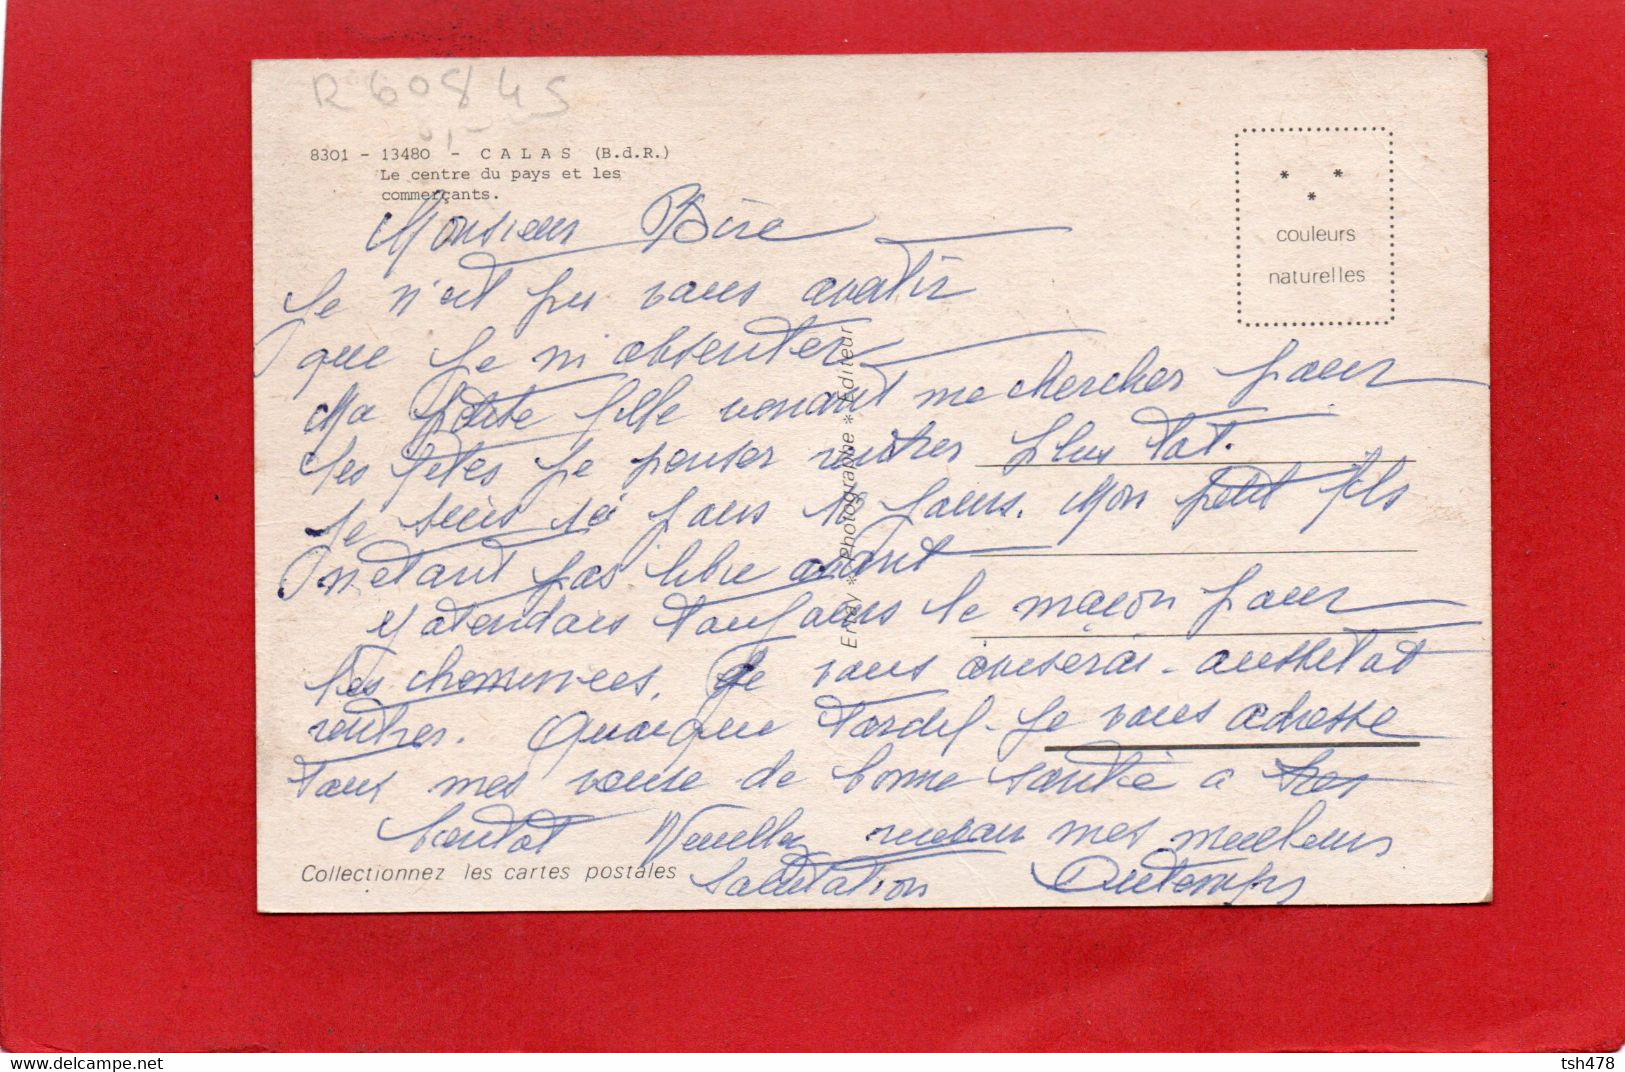 R 60845
8301 - 13480 - CALAS (B.d.R.)
Le centre du pays et les
commerçants.
* * *
couleurs
naturelles
Monsieur Bire
Je n'est pu vous avatir
que je m'absenter
Ma petite fille venant me chercher pour
les fêtes je penser rentrer plus tat.
Je suis ici pour 10 jours. Mon petit fils
netant pas libre avant
J'atendais toujours le maçon pour
les cheminees. Je vous aviserai aussitat
rentrer. Quoique tardif Je vous adresse
tous mes voeuse de bonne santé a
bientot Veuillez mes meilleurs
Salutation Autemps
Erray * Photographe * Editeur
Collectionnez les cartes postales
tsh478
https://www.delcampe.net